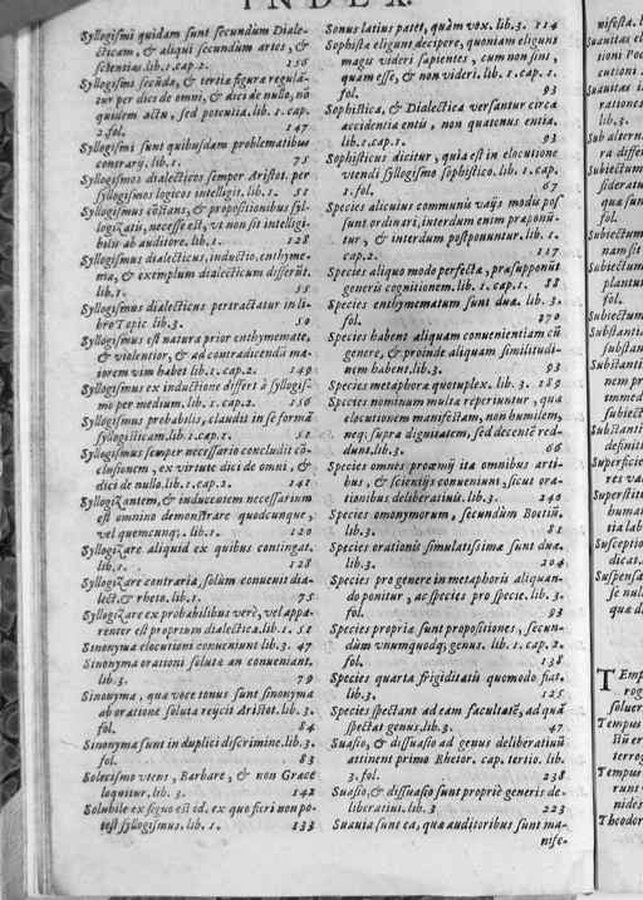 INDEX.
Syllogismi quidam sunt secundùm Diale-
cticam, & aliqui secundùm artes, &
scientias. lib. 1. cap. 2. 156
Syllogismi secūdæ, & tertiæ figuræ regulā-
tur per dici de omni, & dici de nullo, nō
quidem actu, sed potentia. lib. 1. cap.
2. fol. 147
Syllogismi sunt quibusdam problematibus
contrarij. lib. 1. 75
Syllogismos dialecticos semper Aristot. per
syllogismos logicos intelligit. lib. 1. 51
Syllogismus cōstans, & propositionibus syl-
logizatis, necesse est, vt non sit intelligi-
bilis ab auditore. lib. 1. 128
Syllogismus dialecticus, inductio, enthyme-
ma, & exemplum dialecticum differūt.
lib. 1. 55
Syllogismus dialecticus pertractatur in li-
bro Topic lib. 3. 50
Syllogismus est natura prior enthymemate,
& violentior, & ad contradicendū ma-
iorem vim habet lib. 1. cap. 2. 149
Syllogismus ex inductione differt à syllogis-
mo per medium. lib. 1. cap. 2. 156
Syllogismus probabilis, claudit in se formā
syllogisticam. lib. 1. cap. 1. 51
Syllogismus semper necessario concludit cō-
clusionem, ex virtute dici de omni, &
dici de nullo. lib. 1. cap. 2. 141
Syllogizantem, & inducentem necessarium
est omnino demonstrare quodcunque,
vel quemcunq;. lib. 1. 120
Syllogizare aliquid ex quibus contingat.
lib. 1. 128
Syllogizare contraria, solùm conuenit dia-
lect. & rheto. lib. 1. 75
Syllogizare ex probabilibus verè, vel appa-
renter est proprium dialectica. lib. 1. 51
Sinonyma elocutioni conueniunt lib. 3. 47
Sinonyma orationi solutæ an conueniant.
lib. 3. 79
Sinonyma, qua voce tonus sunt sinonyma
ab oratione soluta reijcit Aristot. lib. 3.
fol. 84
Sinonyma sunt in duplici discrimine. lib. 3.
fol. 83
Solecismo vtens, Barbare, & non Græce
loquitur. lib. 3. 142
Solubile ex signo est id. ex quo fieri non po-
test syllogismus. lib. 1. 133
Sonus latius patet, quàm vox. lib. 3. 114
Sophistæ eligunt decipere, quoniam eligunt
magis videri sapientes, cum non sint,
quam esse, & non videri. lib. 1. cap. 1.
fol. 93
Sophistica, & Dialectica versantur circa
accidentia entis, non quatenus entia.
lib. 1. cap. 1. 93
Sophisticus dicitur, quia est in elocutione
vtendi syllogismo sophistico. lib. 1. cap.
1. fol. 67
Species alicuius communis varijs modis pos
sunt ordinari, interdum enim praponū-
tur, & interdum postponuntur. lib. 1.
cap. 2. 117
Species aliquo modo perfectæ, præsupponūt
generis cognitionem. lib. 1. cap. 1. 88
Species enthymematum sunt duæ. lib. 3.
fol. 270
Species habent aliquam conuenientiam cū
genere, & proinde aliquam similitudi-
nem habent. lib. 3. 93
Species metaphoræ quotuplex. lib. 3. 189
Species nominum multa reperiuntur, quæ
elocutionem manifestam, non humilem,
neq; supra dignitatem, sed decentē red-
dunt. lib. 3. 66
Species omnes proœmij ita omnibus arti-
bus, & scientijs conueniunt, sicut ora-
tionibus deliberatiuis. lib. 3. 240
Species omonymorum, secundùm Boetiū.
lib. 3. 81
Species orationis simulatissimæ sunt duæ.
lib. 3. 204
Species pro genere in metaphoris aliquan-
do ponitur, ac species pro specie. lib. 3.
fol. 93
Species propriæ sunt propositiones, secun-
dùm vnumquodq; genus. lib. 1. cap. 2.
fol. 138
Species quarta frigiditatis quomodo fiat.
lib. 3. 125
Species spectant ad eam facultatē, ad quā
spectat genus. lib. 3. 47
Suasio, & dissuasio ad genus deliberatiuū
attinent primo Rhetor. cap. tertio. lib.
3. fol. 238
Suasio, & dissuasio sunt propriè generis de-
liberatiui. lib. 3 223
Suauia sunt ea, quæ auditoribus sunt ma-
nife-